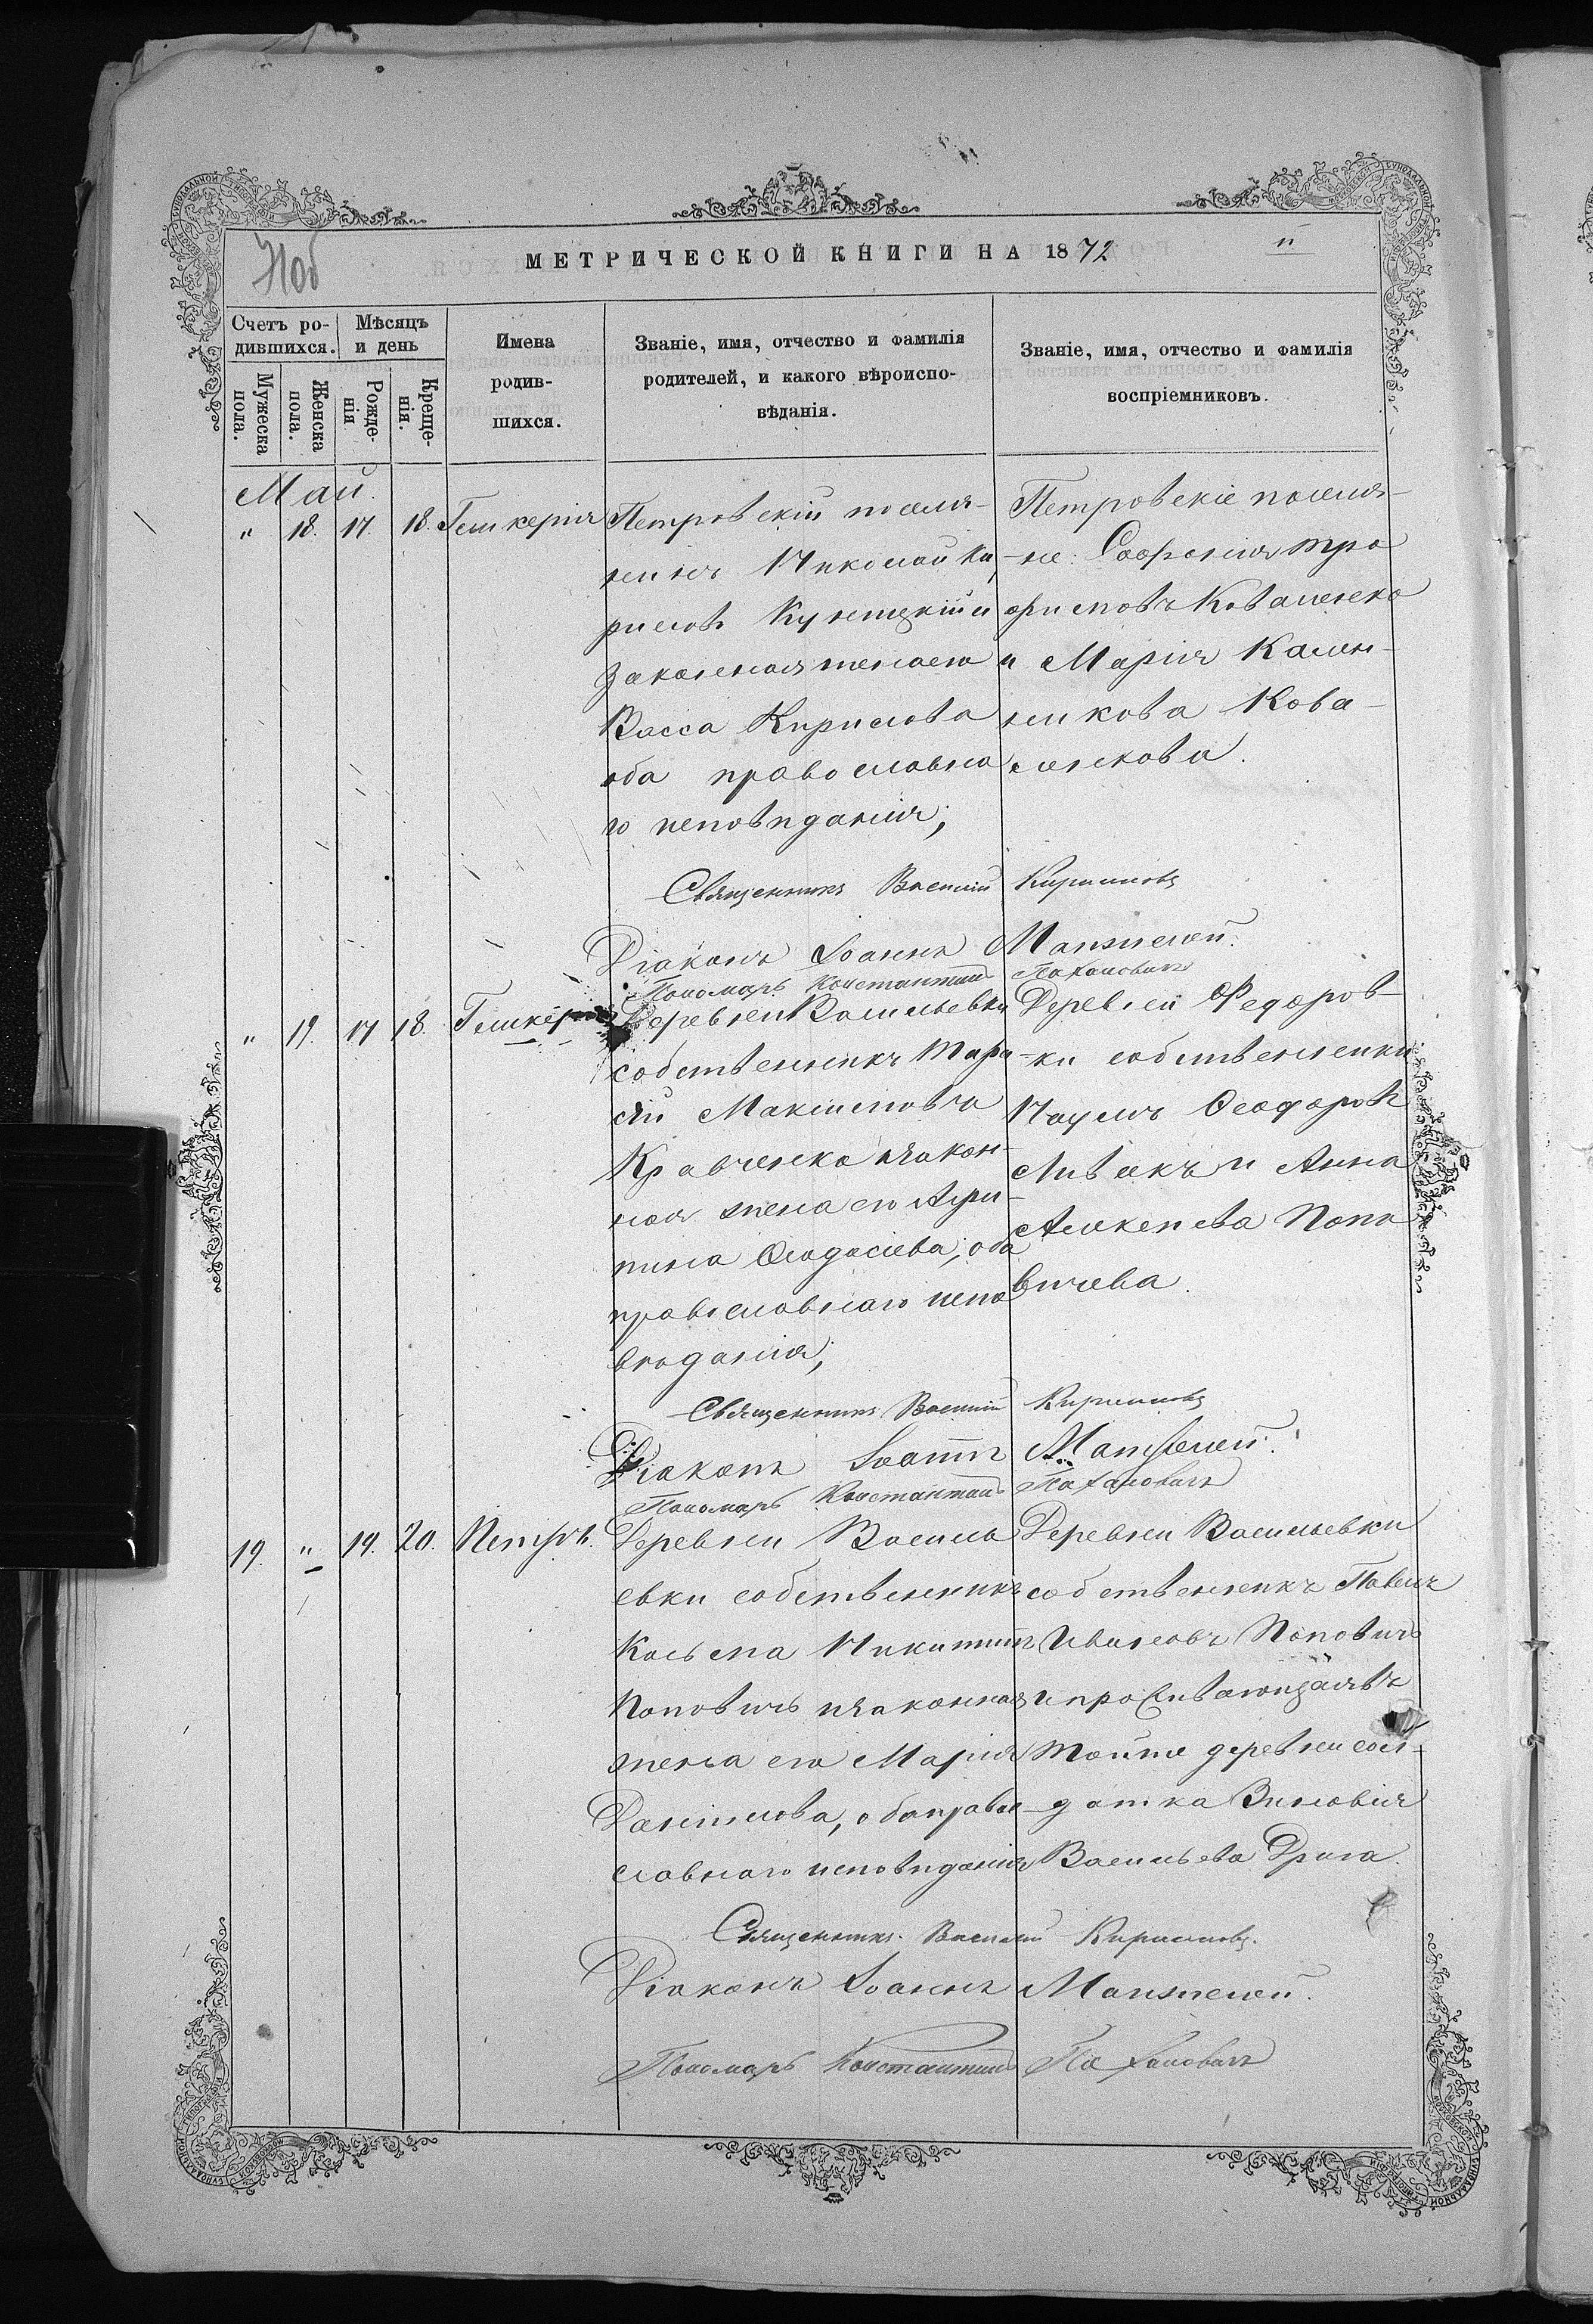 МЕТРИЧЕСКОЙ КНИГИ НА 1872
Счетъ ро-
дившихся.
Мѣсяцъ
и день
Мужеска
пола.
Женска
пола.
Рожде-
нія
Креще-
нія.
Имена
родив-
шихся.
Званіе, имя, отчество и фамилія
родителей, и какого вѣроиспо-
вѣданія.
Званіе, имя, отчество и фамилія
воспріемниковъ.
Май.
" 18. 17. 18. Гликерія
Петровскій поселя-
нинъ Николай Ки
риловъ Куницкій и
законная жена его
Васса Кирилова
оба православна
го исповѣданія;
Петровскіе поселя-
-не: Софронія Тро
фимовъ Коваленко
и Марія Калин-
никова Кова-
ленкова.
Священникъ Василій Кириловъ
Діаконъ Іоаннъ Манжелей.
Пономарь Константинъ
" 19. 17 18. Гликерія
Деревни Васильевки
собственникъ Тара
сій Максимовъ
Кравченко и закон-
ная жена его Агри-
пина Ѳеодосіева; оба
православнаго испо
вѣданія;
Деревни Федоров-
-ки собственники
Наумъ Ѳеодоровъ
Анна
Алексіева Попо
вичева.
Священникъ Василій Кириловъ
Діаконъ Іоаннъ Манжелей.
Пономарь Константинъ
19. " 19. 20. Петръ.
Деревни Василь
евки собственникъ
Косьма Никитинъ
Поповичъ и законная
жена его Марія
Даніилова, оба право
славнаго исповѣданія
Деревни Васильевки
собственникъ Павелъ
Ивановъ Поповичъ
и проживающая въ
той же деревни сол-
датка Зиновія
Васильева Дрига.
Священникъ Василій Кириловъ.
Діаконъ Іоаннъ Манжелей.
Пономарь Константинъ